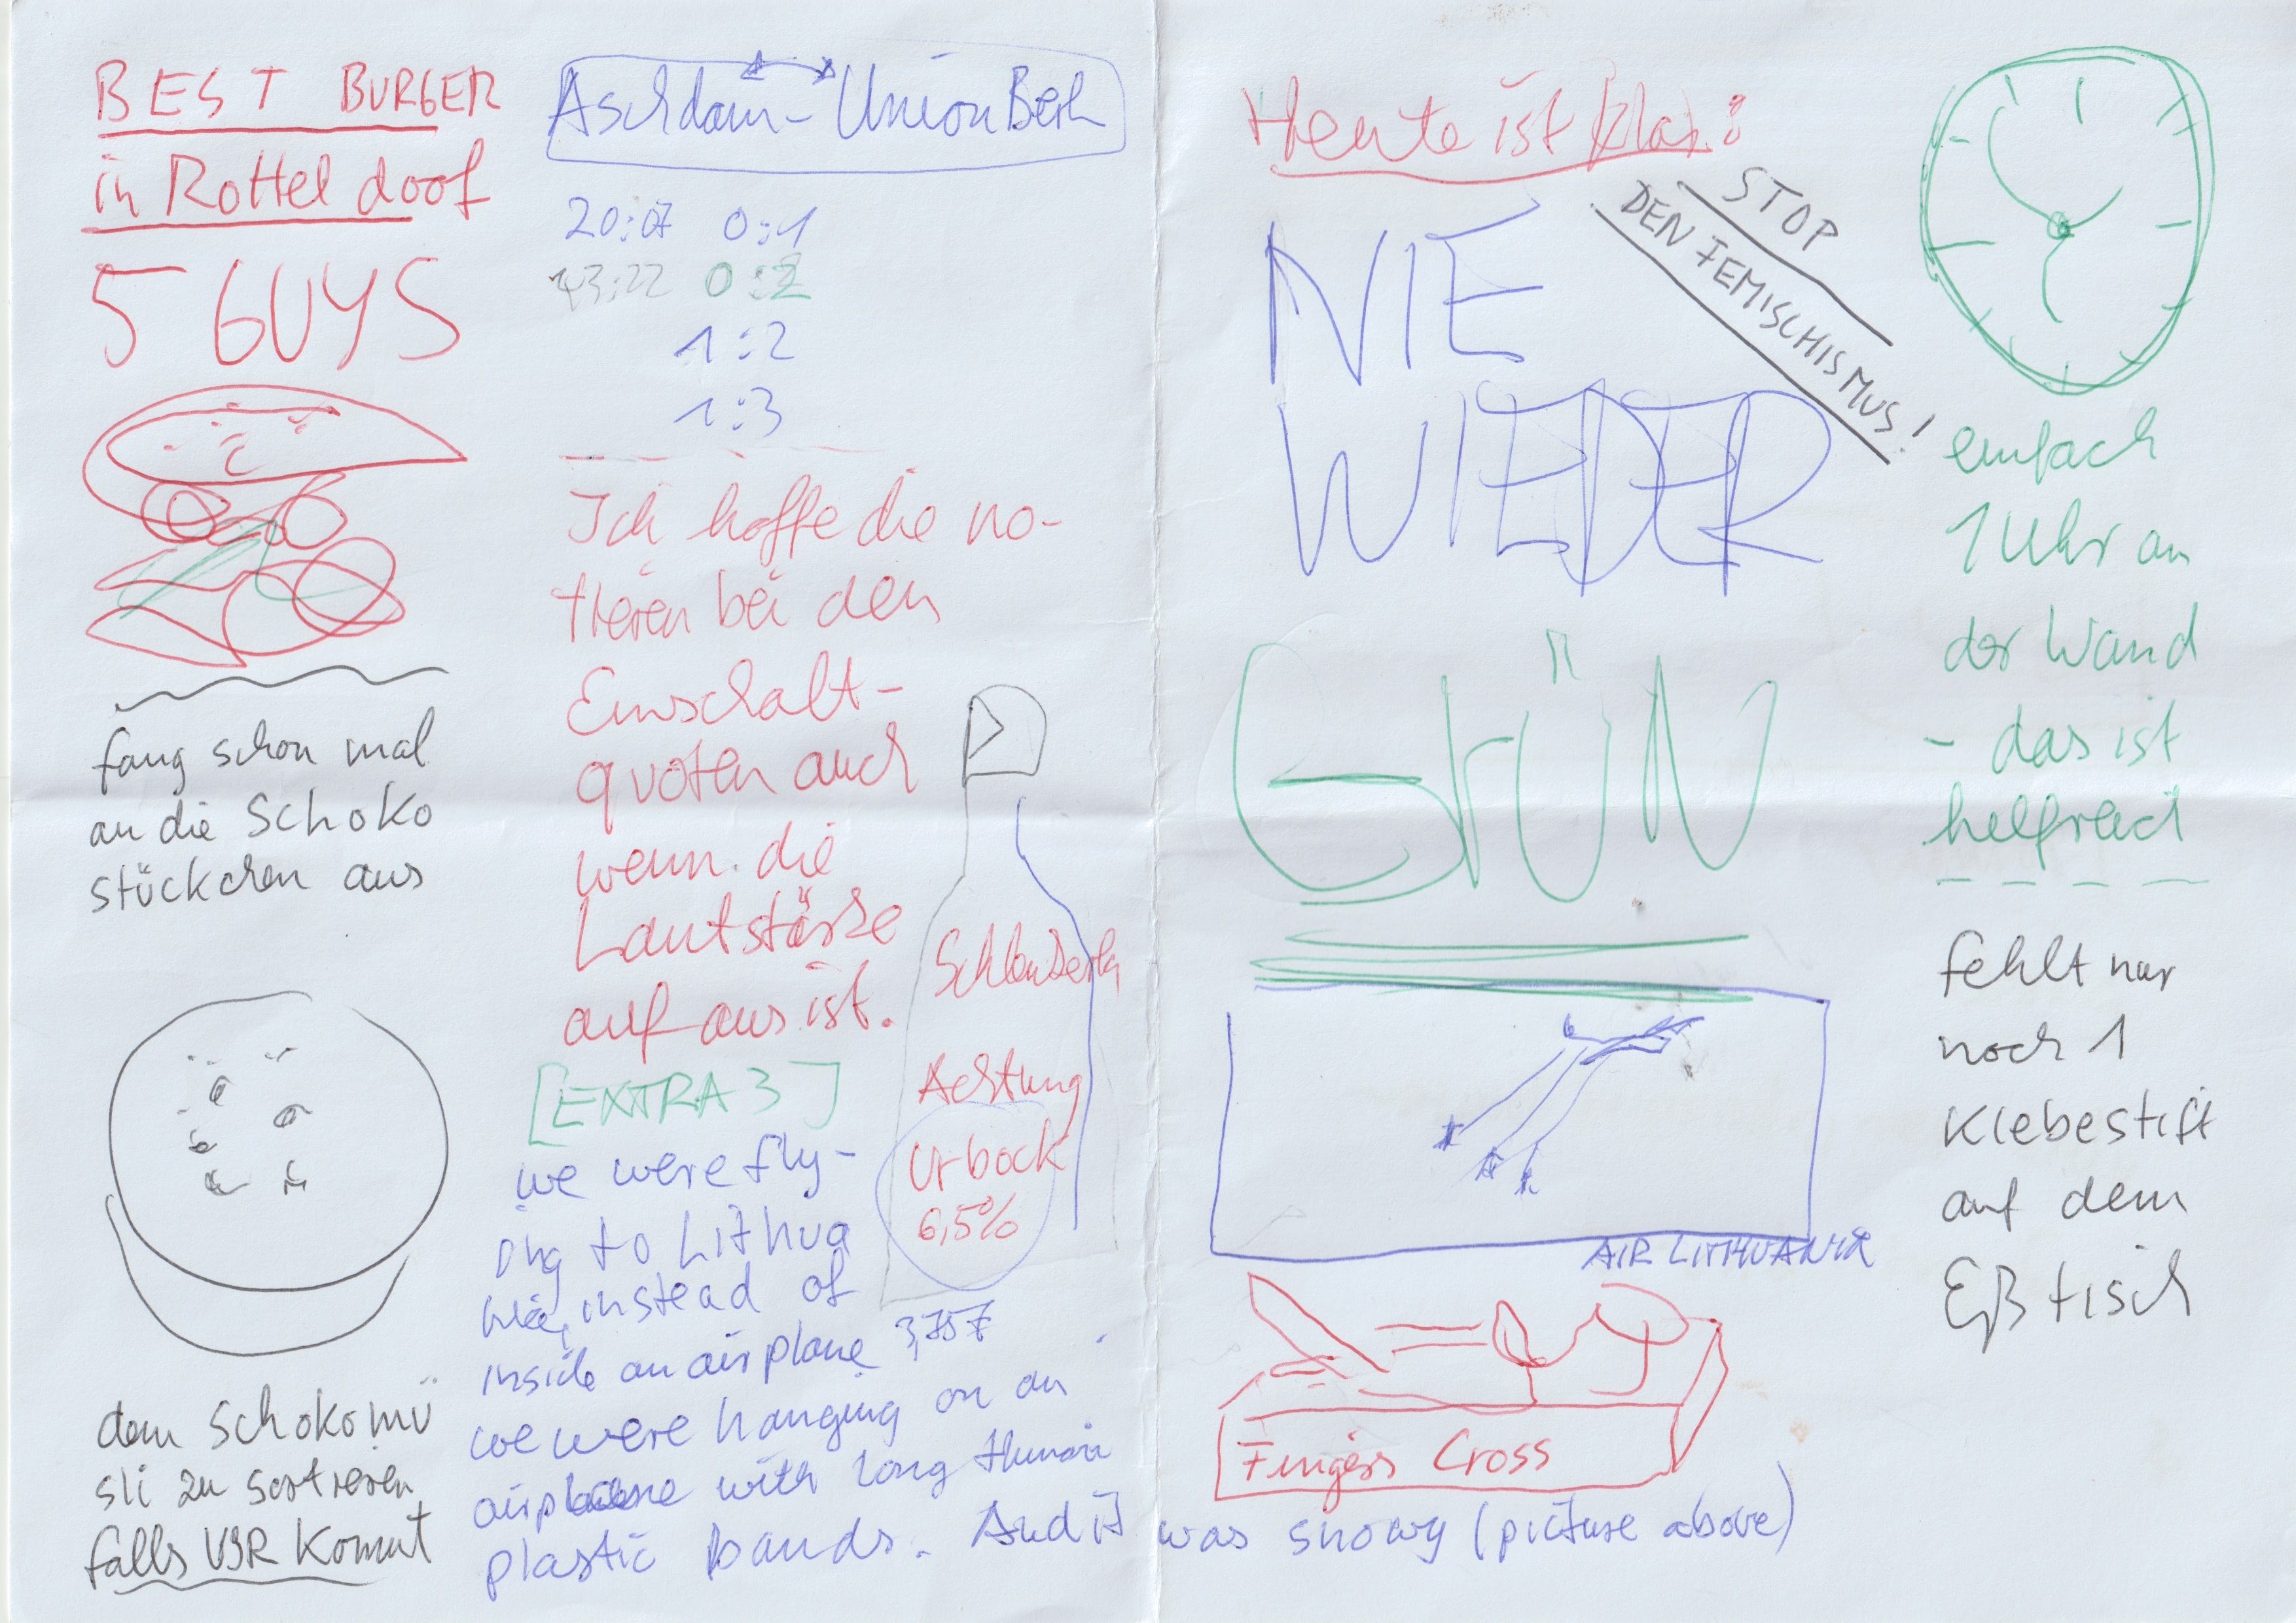 BEST BURGER
in Rottel doof
5 GUYS
fang schon mal
an die Schoko
stückchen aus
dem Schokomü
sli zu sortieren
falls VSR kommt
Aschdam - Union Berl
20:07 0:1
43:22 0:2
1:2
1:3
Ich hoffe die no-
tieren bei den
Einschalt-
quoten auch
wenn die
Lautstärke
auf aus ist.
[EXTRA 3]
Schlenkerla
Achtung
Urbock
6,5%
3,75€
we were fly-
ing to Lithua
nia, instead of
inside an airplane
we were hanging on an
airplane with long
plastic bands. And it was snowy (picture above)
Heute ist klar:
NIE
WIEDER
GRÜN
STOP
DEN FEMISCHISMUS!
AIR LITHUANIA
Fingers Cross
einfach
1 Uhr an
der Wand
- das ist
helfreich
fehlt nur
noch 1
Klebestift
auf dem
Eßtisch